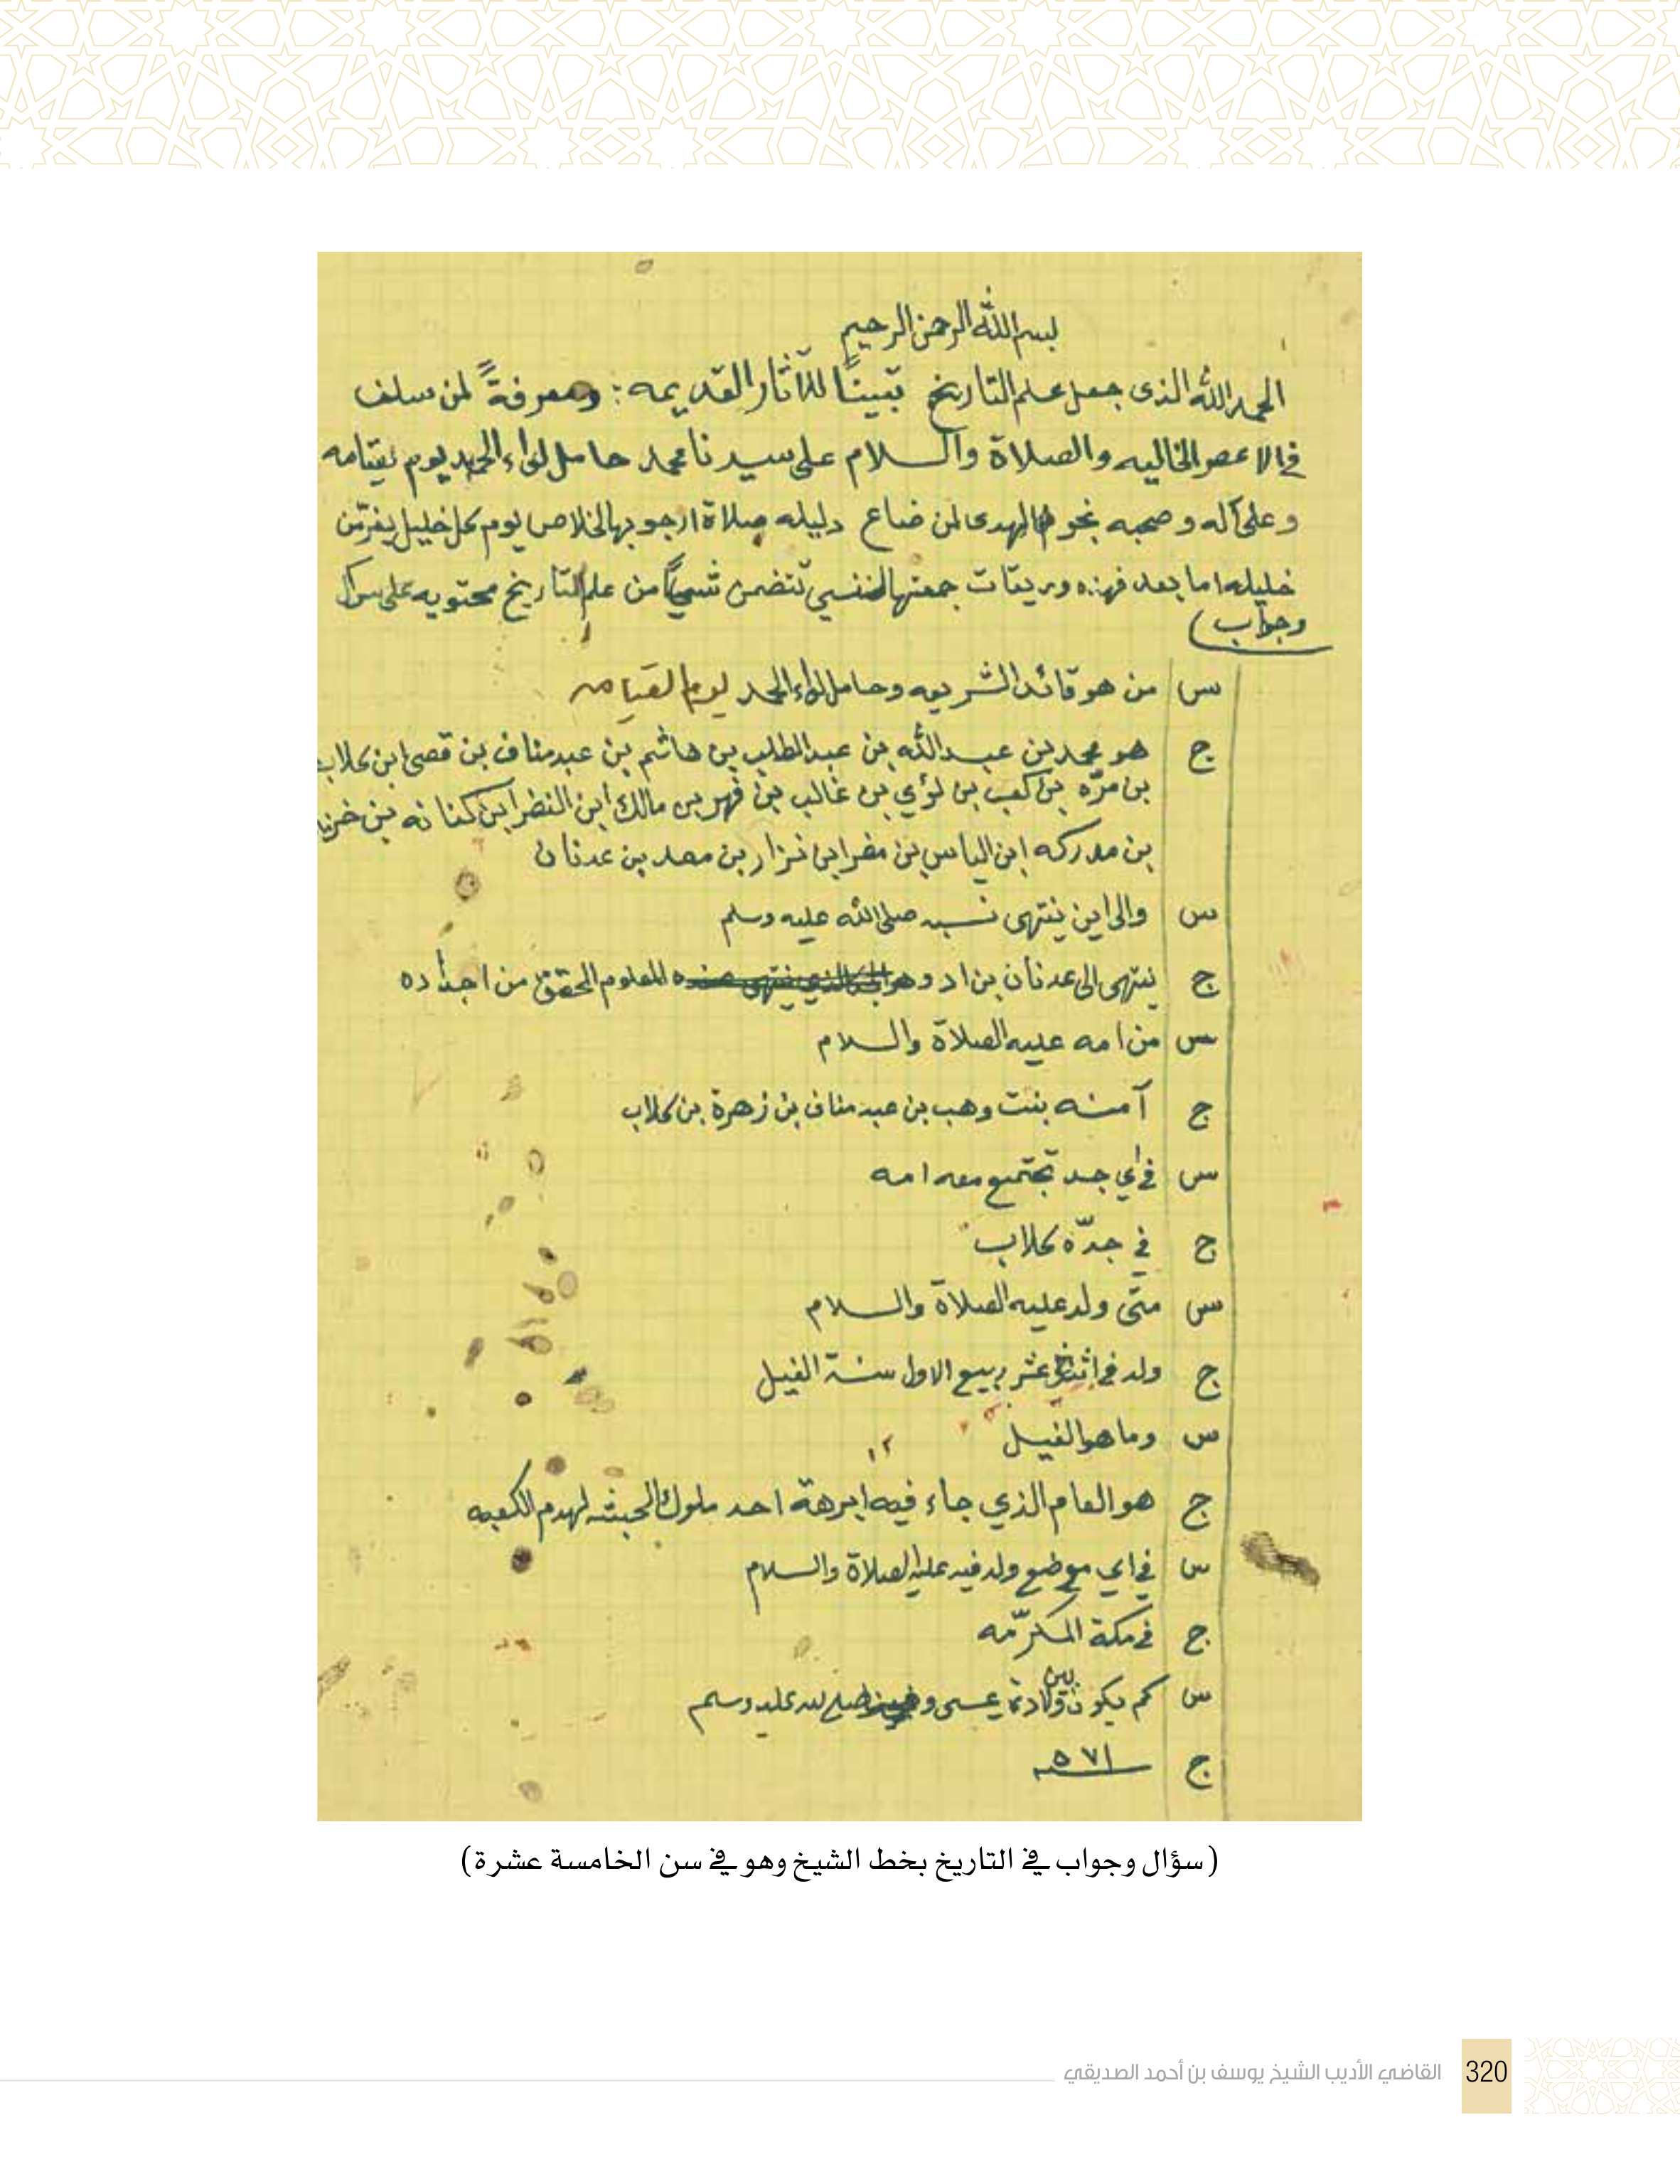 بسم الله الرحمن الرحيم
الحمد لله الذى جعل علم التاريخ تبينًا للآثار القديمه : ومعرفةً لمن سلف
فى الاعصر الخاليه والصلاة والسلام على سيدنا محمد حامل لواء الحمد يوم
وعلى آله وصحبه نجوم الهدى لمن ضاع دليله صلاة ارجو بها الخلاص يوم كل خليل يفر من
خليله اما بعد فهذه وريقات جمعتها لنفسي تتضمن شيئًا من علم التاريخ محتويه على سؤال
وجواب)
س من هو قائد الشريعه وحامل لواء الحمد يوم القيامه
ج هو محمد بن عبد الله بن عبد المطلب بن هاشم بن عبد مناف بن قصى ابن كلاب
بن مرّه بن كعب بن لؤي بن غالب بن فهر بن مالك ابن النضر ابن كنانه بن خزيمه
بن مدركه ابن الياس بن مضر ابن نزار بن معد بن عدنان
س والى اين ينتهى نسبه صلى الله عليه وسلم
ج ينتهى الى عدنان بن اد وهو المعلوم المحقق من اجداده
س من امه عليه الصلاة والسلام
ج آمنه بنت وهب بن عبد مناف بن زهرة بن كلاب
س في اي جد تجتمع معه امه
ج في جدّه كلاب
س متى ولد عليه الصلاة والسلام
ج ولد في اثنى عشر ربيع الاول سنة الفيل
س وما هو الفيل
١٢
ج هو العام الذي جاء فيه ابرهة احد ملوك الحبشه لهدم الكعبه
س في اي موضع ولد فيه عليه الصلاة والسلام
ج في مكة المكرّمه
س كم يكون بين ولادة عيسى و صلى الله عليه وسلم
ج ٥٧١
(سؤال وجواب في التاريخ بخط الشيخ وهو في سن الخامسة عشرة)
القاضي الأديب الشيخ يوسف بن أحمد الصديقي 320